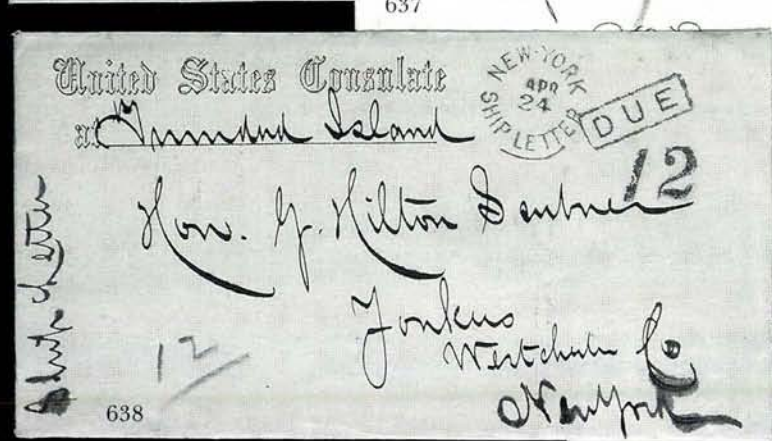 637
United States Consulate
at Trinidad Island
NEW-YORK
APR
24
SHIP LETTER
DUE
12
Hon. G. Hilton Scribner
Yonkers
Westchester Co
New York
Ship Letter
12
638